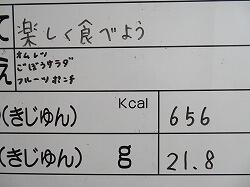 て 楽しく食べよう
え オムレツ
ごぼうサラダ
フルーツポンチ
Kcal
(きじゅん) 656
(きじゅん) g 21.8